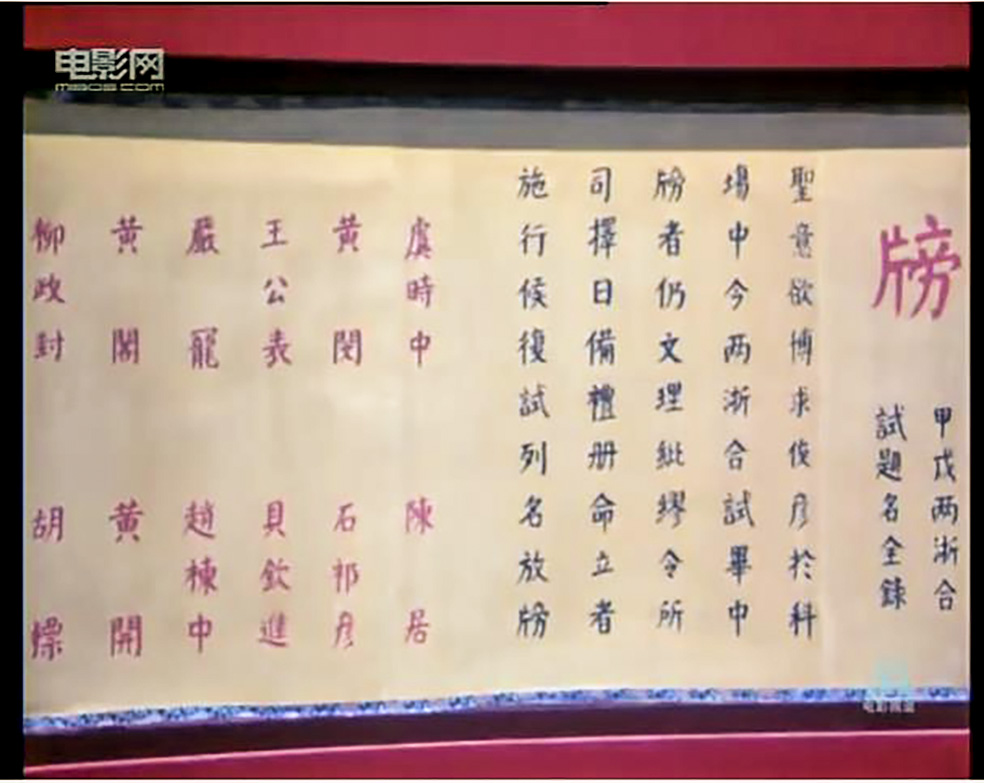 电影网
牓
甲戌两浙合
試題名全錄
聖意欲博求俊彦於科
場中今两浙合試畢中
牓者仍文理紕繆令所
司擇日備禮册命立者
施行候復試列名放牓
虞時中 陳居
黃閔 石祁彦
王公表 貝欽進
嚴寵 趙棟中
黃閣 黃開
柳政封 胡標